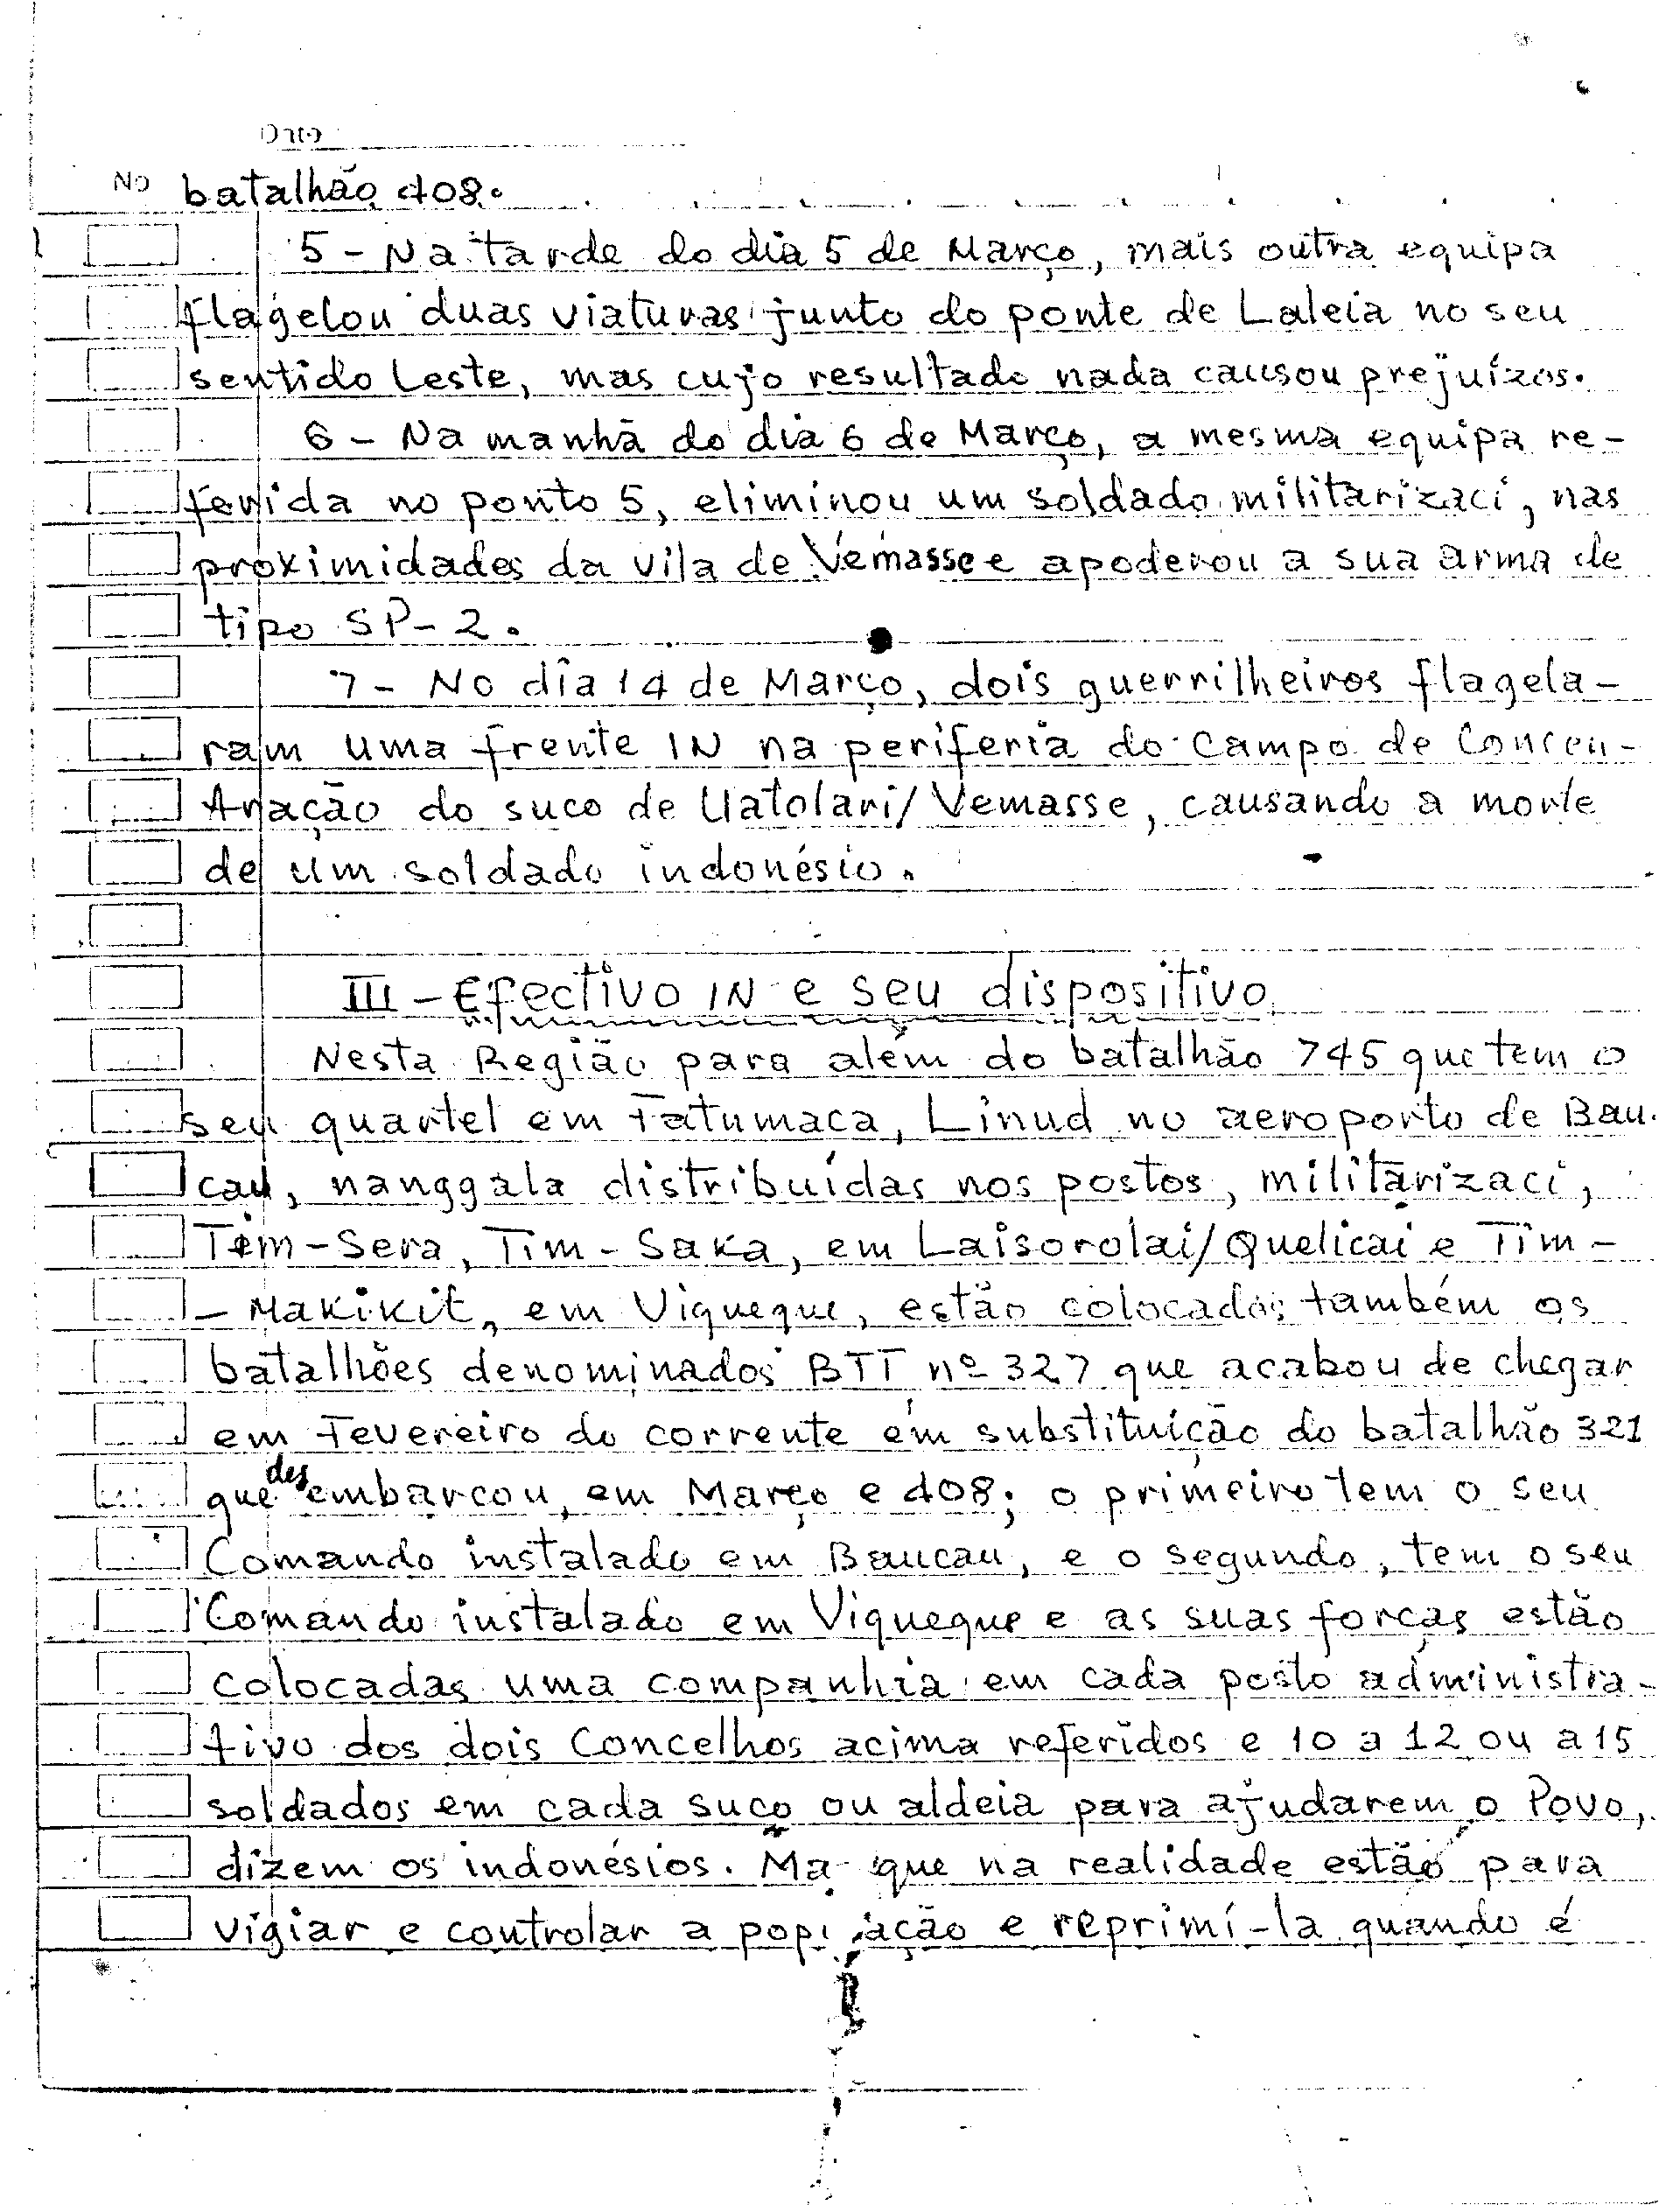 Date
No batalhão 408.
5 - Na tarde do dia 5 de Março, mais outra equipa
flagelou duas viaturas junto do ponte de Laleia no seu
sentido Leste, mas cujo resultado nada causou prejuízos.
6 - Na manhã do dia 6 de Março, a mesma equipa re-
ferida no ponto 5, eliminou um soldado militarizaci, nas
proximidades da vila de Vemasse e apoderou a sua arma de
tipo SP-2.
7 - No dia 14 de Março, dois guerrilheiros flagela-
ram uma frente IN na periferia do Campo de Concen-
tração do suco de Uatolari/Vemasse, causando a morte
de um soldado indonésio.
III - Efectivo IN e seu dispositivo
Nesta Região para além do batalhão 745 que tem o
seu quartel em Fatumaca, Linud no aeroporto de Bau-
cau, nanggala distribuídas nos postos, militarizaci,
Tim-Sera, Tim-Saka, em Laisorolai/Quelicai e Tim-
-Makikit, em Viqueque, estão colocados também os
batalhões denominados BTT nº 327 que acabou de chegar
em Fevereiro do corrente em substituição do batalhão 321
que desembarcou, em Março e 408; o primeiro tem o seu
Comando instalado em Baucau, e o segundo, tem o seu
Comando instalado em Viqueque e as suas forças estão
colocadas uma companhia em cada posto administra-
tivo dos dois Concelhos acima referidos e 10 a 12 ou a 15
soldados em cada suco ou aldeia para ajudarem o Povo,
dizem os indonésios. Ma que na realidade estão para
vigiar e controlar a população e reprimí-la quando é